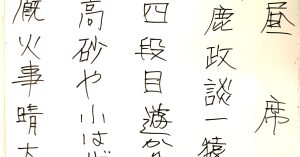 昼席
鹿政談一猿
四段目遊か
高砂や小は
厩火事晴